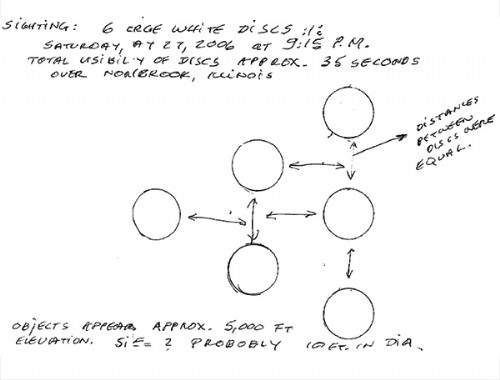 SIGHTING: 6 LRGE WHITE DISCS !!:
SATURDAY, AY 27, 2006 AT 9:15 P.M.
TOTAL USIBILY OF DISCS APPROX. 35 SECONDS
OVER NORTBROOK, ILLINOIS
DISTANCES
BETWEEN
DISCS WERE
EQUAL.
OBJECTS APPEAR APPROX. 5,000 FT
ELEVATION. SIZE = ? PROBOBLY 10 FT. IN DIA.